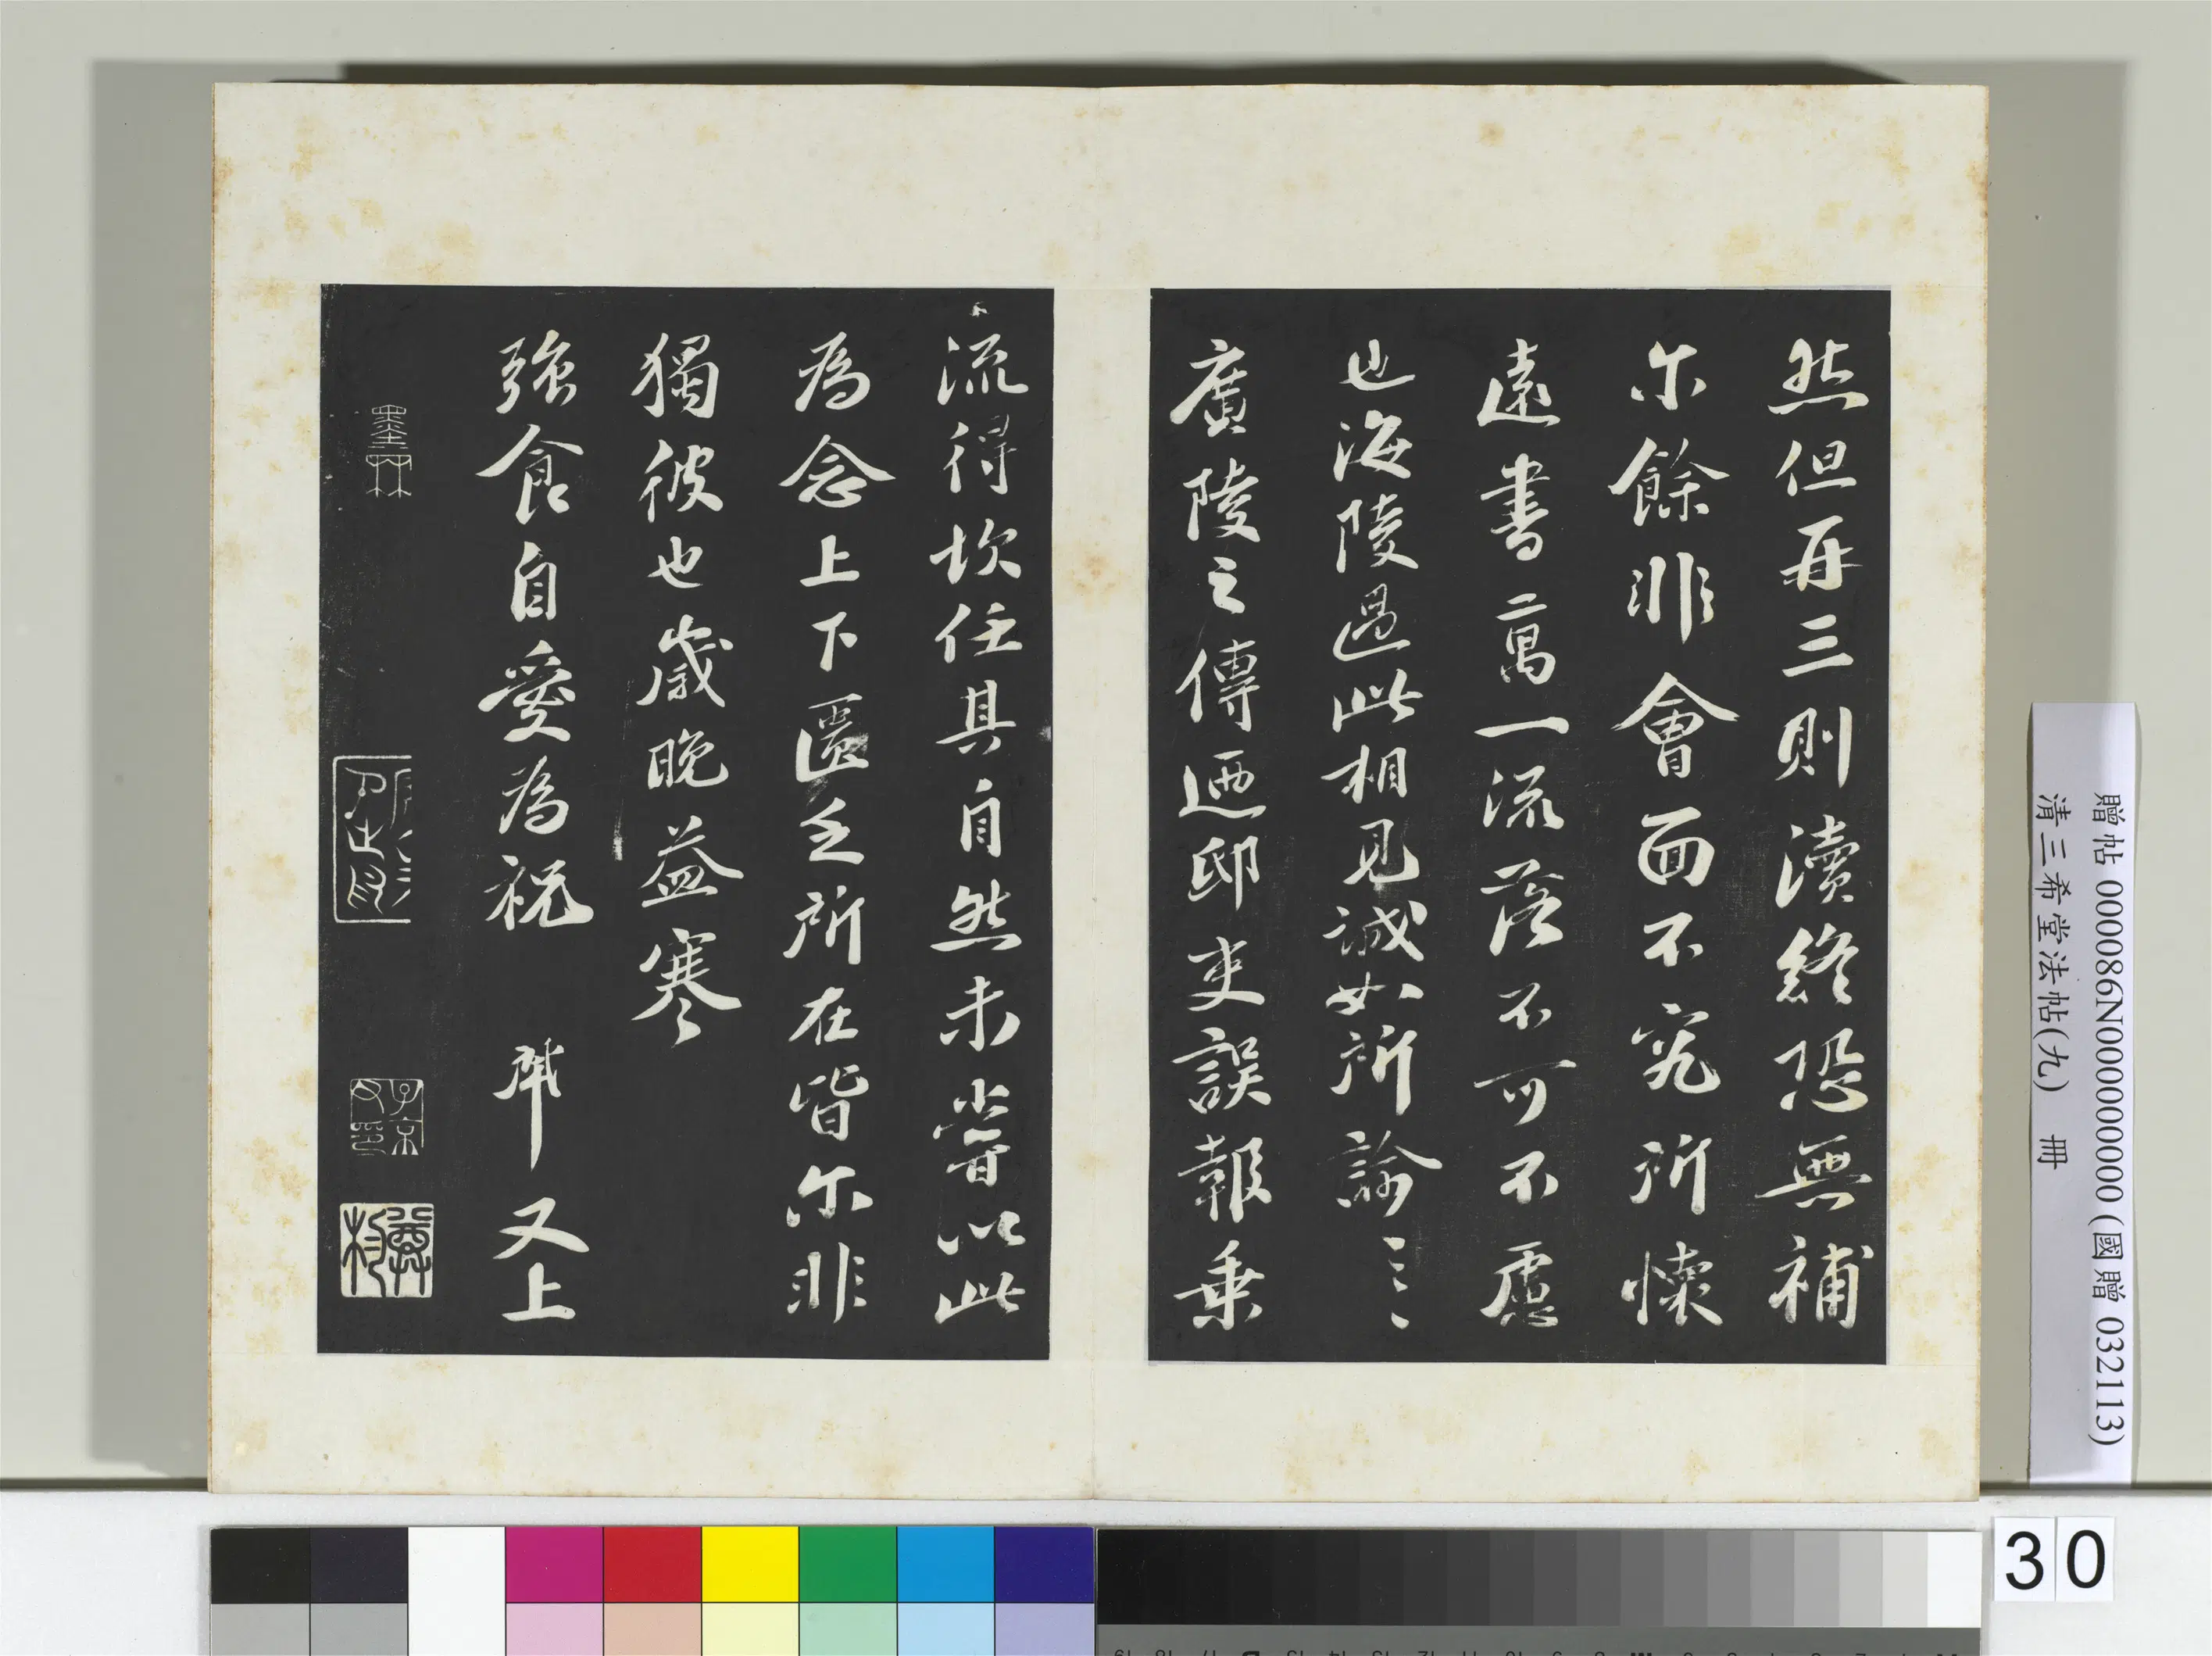 然但再三則瀆終恐無補
尓餘非會面不究所懷
遠書萬一流落不可不慮
也海陵過此相見誠如所諭〻〻
廣陵之傳迺邸吏誤報乗
流得坎任其自然未嘗以此
為念上下匱乏所在皆尓非
獨彼也歲晚益寒
強食自愛為祝 又上
墨林
子京
贈帖 000086N000000000 (國贈 032113)
清三希堂法帖(九) 冊
30